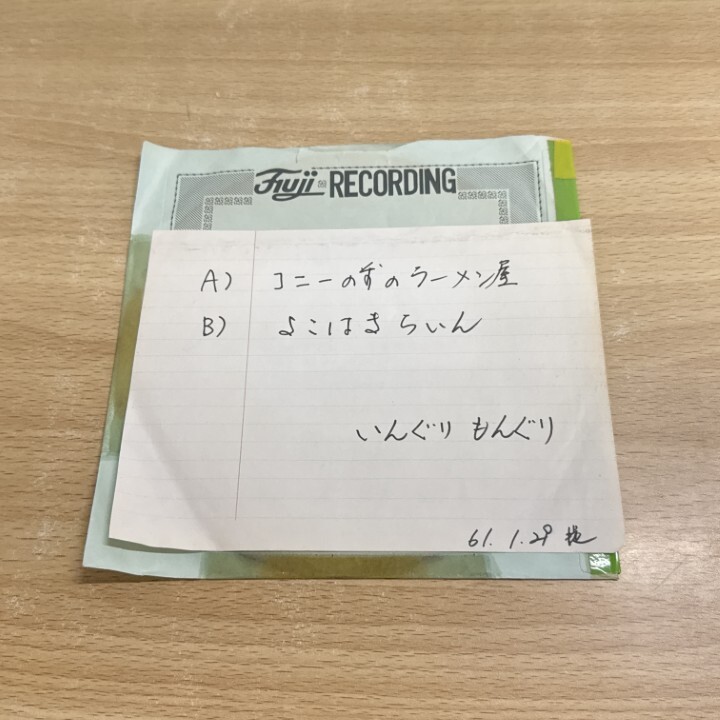 Fuji RECORDING
A) コニーの前のラーメン屋
B) よこはまらいん
いんぐり もんぐり
61.1.29